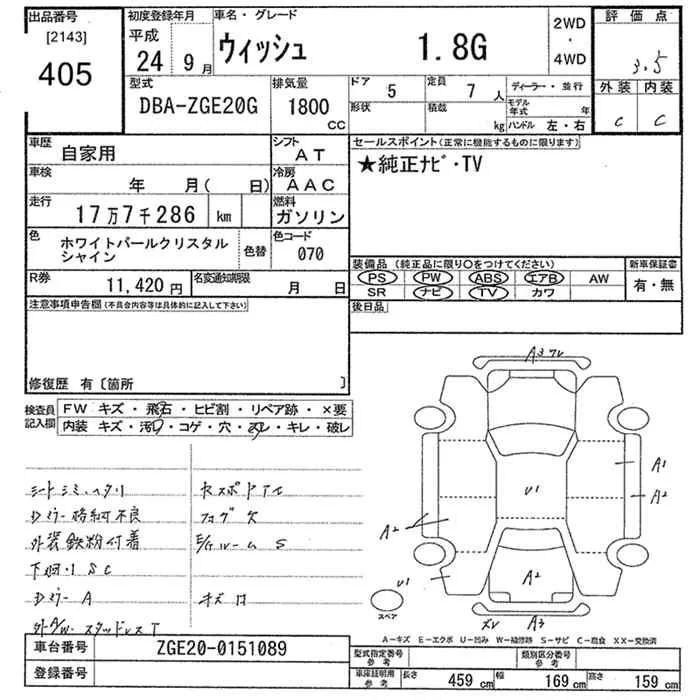 出品番号
[2143]
405
初度登録年月
平成
24年 9月
車名・グレード
ウィッシュ 1.8G
2WD
・
4WD
評価点
3.5
外装 内装
C C
型式
DBA-ZGE20G
排気量
1800
CC
ドア 5
定員 7人
ディーラー・並行
形状
積載 kg
モデル年式 年
ハンドル 左・右
車歴
自家用
シフト
AT
車検
年 月( 日)
冷房
AAC
走行
17万7千286 km
燃料
ガソリン
色
ホワイトパールクリスタル
シャイン
色替
色コード
070
R券
11,420円
名変通知期限
月 日
セールスポイント(正常に機能するものに限ります)
★純正ナビ・TV
装備品 (純正品に限り○をつけてください)
新車保証書
PS PW ABS エアB AW
SR ナビ TV カワ
有・無
後日品
注意事項申告欄(不具合内容等は具体的に記入して下さい)
修復歴 有〔箇所 〕
検査員
記入欄
FW キズ・飛石・ヒビ割・リペア跡・×要
内装 キズ・汚れ・コゲ・穴・スレ・キレ・破レ
シートシミ、ヘタリ
Dミラー格納不良
外装鉄粉付着
下廻リSC
DミラーA
外A/W・スタッドレスT
フォグ欠
E/GルームS
キズ有
A3
A1
A2
A2
U1
U1
A2
A3
スペア
A-キズ E-エクボ U-凹み W-補修跡 S-サビ C-腐食 XX-交換済
車台番号
ZGE20-0151089
登録番号
型式指定番号
参考
類別区分番号
参考
車庫証明用
参考
長さ 459cm 幅 169cm 高さ 159cm